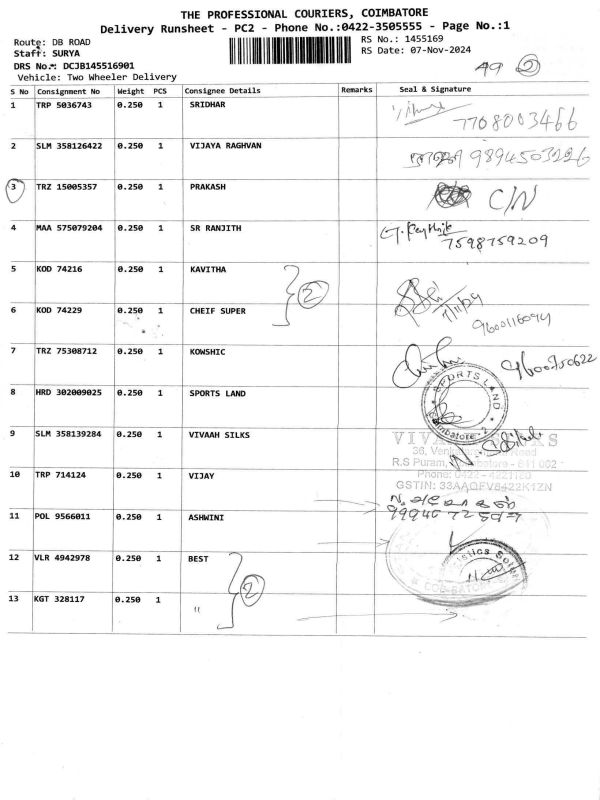 THE PROFESSIONAL COURIERS, COIMBATORE
Delivery Runsheet - PC2 - Phone No.:0422-3505555 - Page No.:1
Route: DB ROAD
RS No.: 1455169
Staff: SURYA
RS Date: 07-Nov-2024
DRS No.: DCJB145516901
Vehicle: Two Wheeler Delivery
49 2
S No Consignment No Weight PCS Consignee Details Remarks Seal & Signature
1 TRP 5036743 0.250 1 SRIDHAR
7708003466
2 SLM 358126422 0.250 1 VIJAYA RAGHVAN
9894503226
3 TRZ 15005357 0.250 1 PRAKASH C/N
4 MAA 575079204 0.250 1 SR RANJITH
7598759209
5 KOD 74216 0.250 1 KAVITHA
2
6 KOD 74229 0.250 1 CHEIF SUPER
7/11/24
9600116094
7 TRZ 75308712 0.250 1 KOWSHIC
9600750622
8 HRD 302009025 0.250 1 SPORTS LAND
SPORTS LAND
Coimbatore-2
9 SLM 358139284 0.250 1 VIVAAH SILKS
36,
R.S Puram, - 641 002
Phone: 0422 -
GSTIN:
10 TRP 714124 0.250 1 VIJAY
11 POL 9566011 0.250 1 ASHWINI
12 VLR 4942978 0.250 1 BEST
2
13 KGT 328117 0.250 1 "